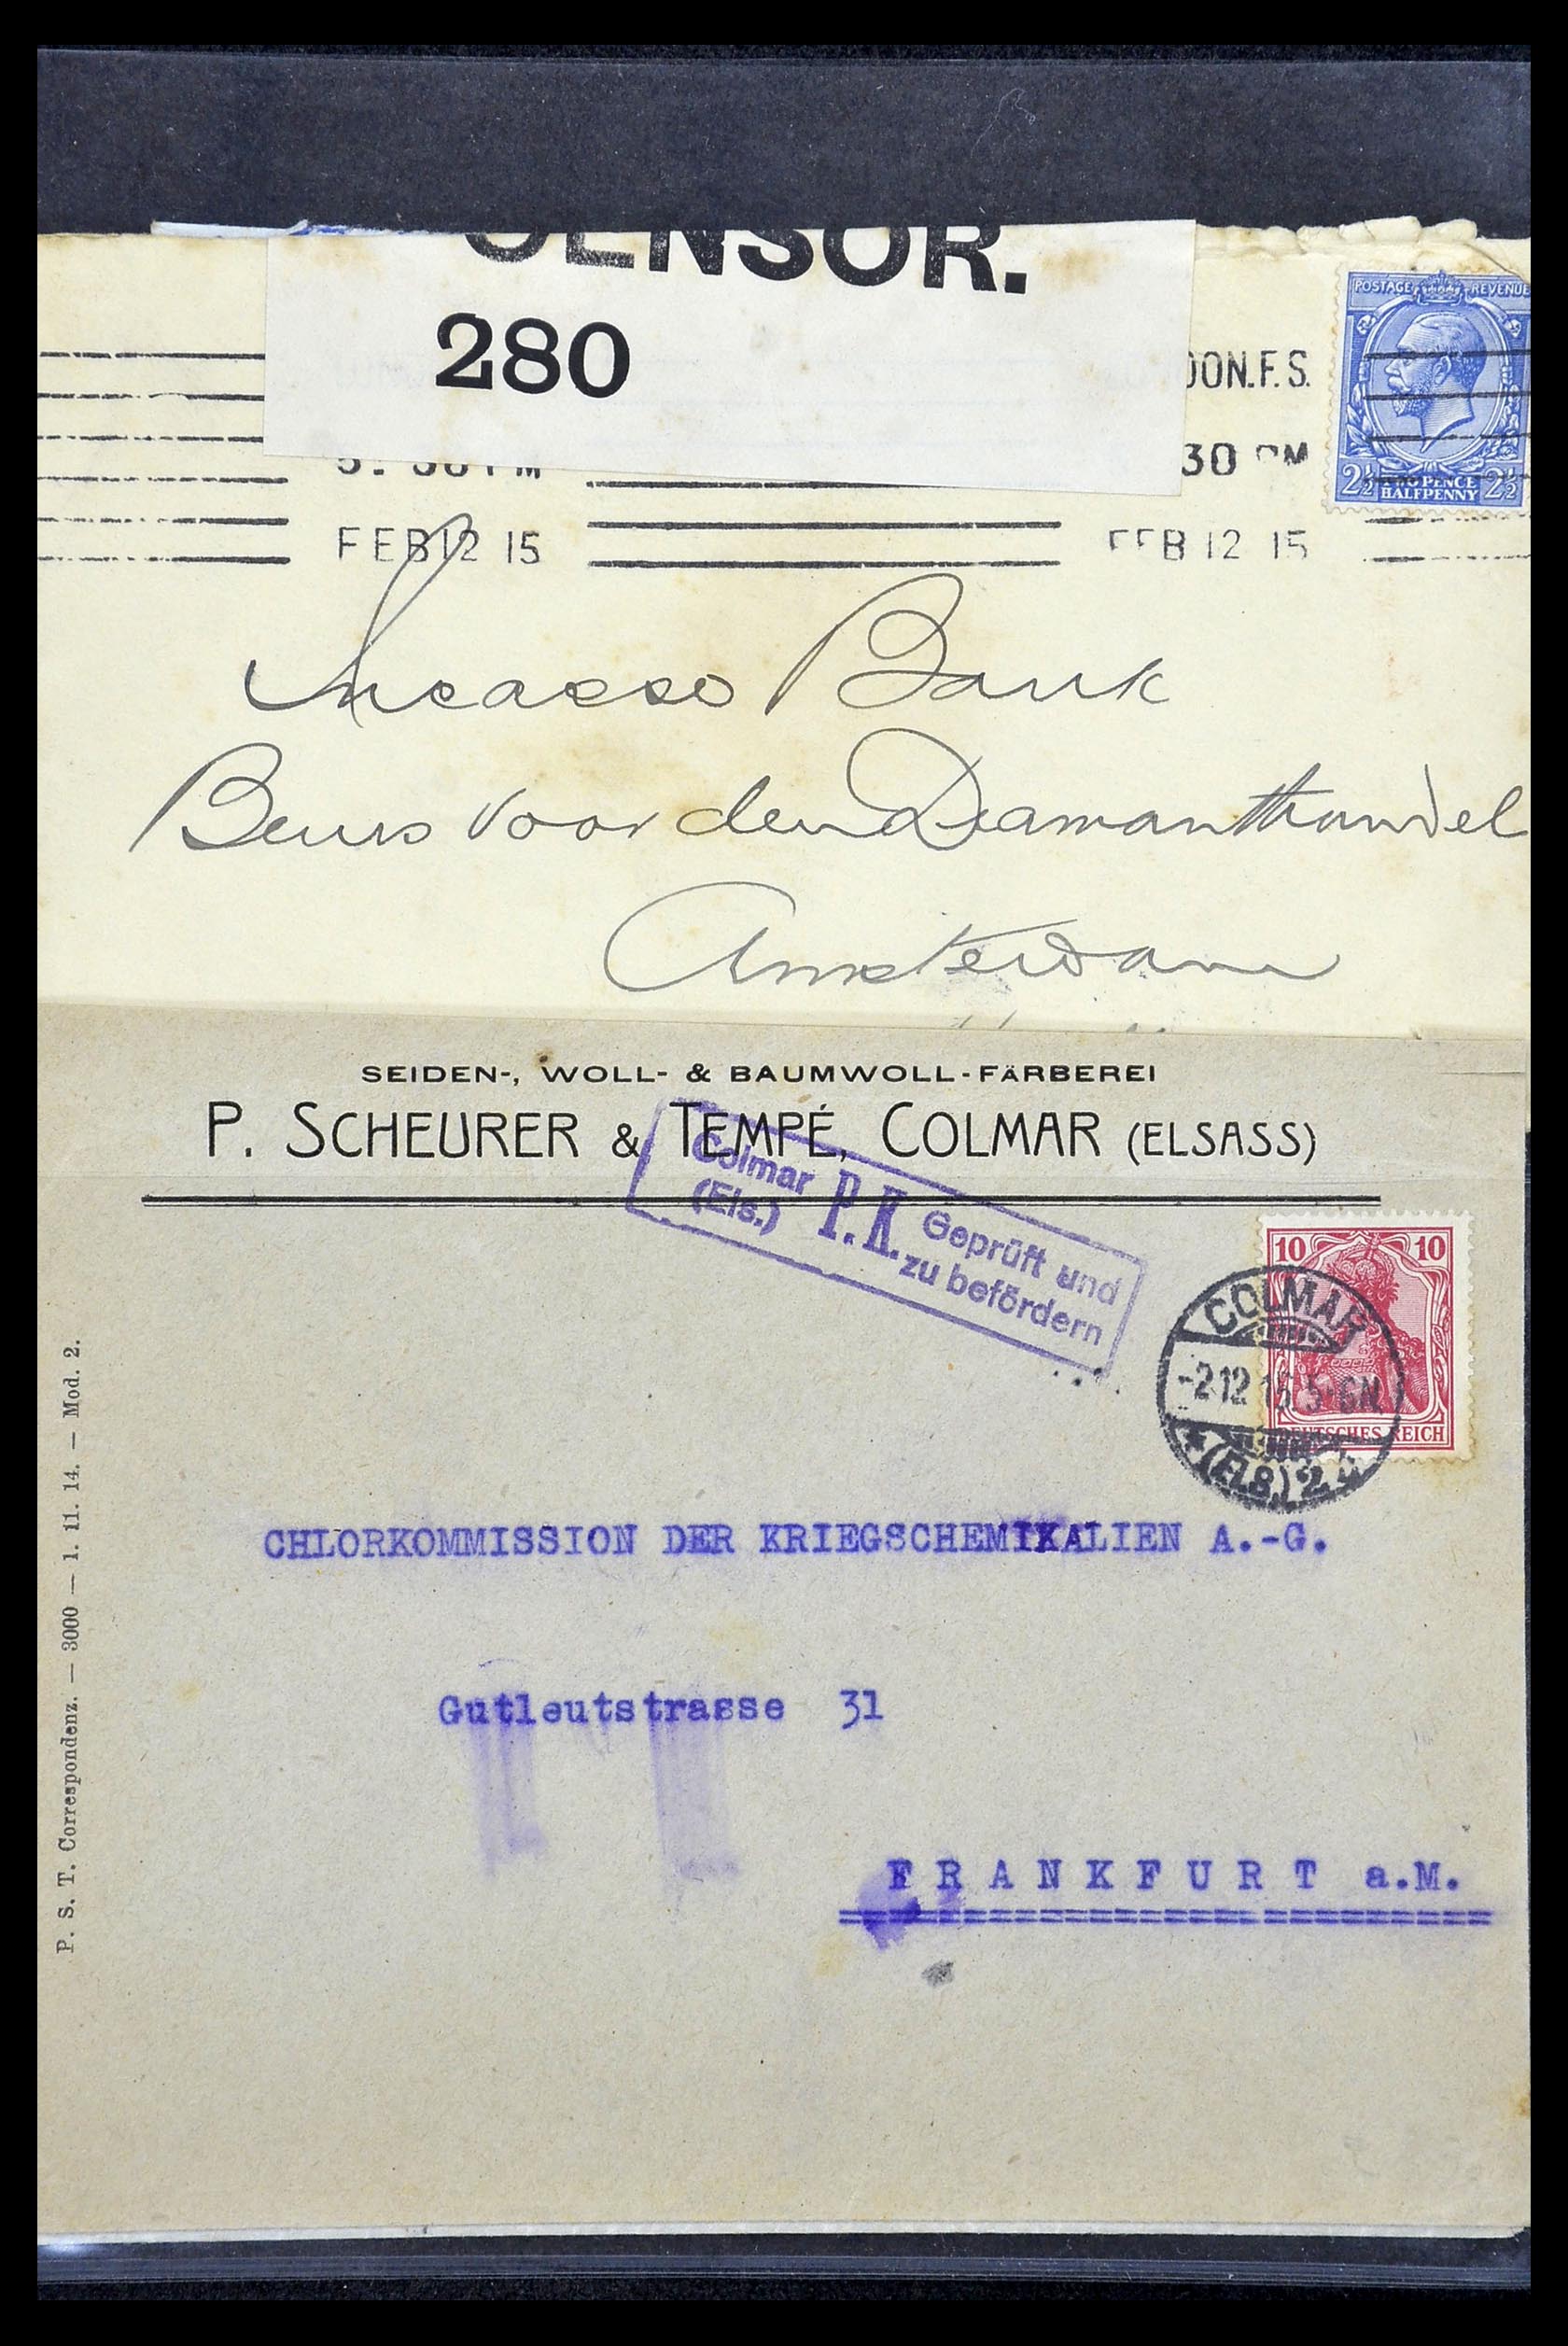 CENSOR.
280
POSTAGE REVENUE
DON.F.S.
30 PM
2½ TWO PENCE HALFPENNY 2½
5. 30 PM
FEB 12 15
FEB 12 15
Incasso Bank
Beurs voor den Diamanthandel
Amsterdam
SEIDEN-, WOLL- & BAUMWOLL-FÄRBEREI
P. SCHEURER & TEMPÉ, COLMAR (ELSASS)
Colmar (Els.) P.K. Geprüft und zu befördern
10 10
DEUTSCHES REICH
COLMAR
-2.12 15.5-6N.
(ELS.) 2.
CHLORKOMMISSION DER KRIEGSCHEMIKALIEN A.-G.
Gutleutstrasse 31
FRANKFURT a.M.
P. S. T. Correspondenz. — 3000 — 1. 11. 14. — Mod. 2.